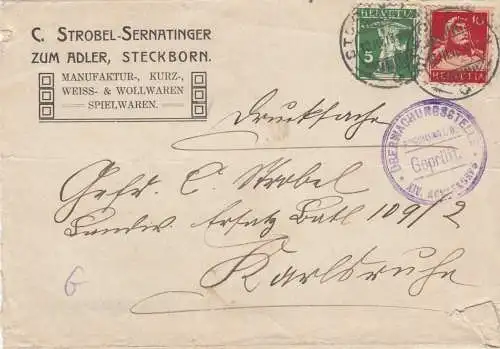 C. STROBEL-SERNATINGER
ZUM ADLER, STECKBORN.
MANUFAKTUR-, KURZ-,
WEISS- & WOLLWAREN
SPIELWAREN.
HELVETIA
5
10
HELVETIA
ÜBERWACHUNGSSTELLE
Geprüft.
XIV. ARMEEKORPS
Drucksache
Gefr. C. Strobel
Landw. Ersatz Batl 109/2
Karlsruhe
G